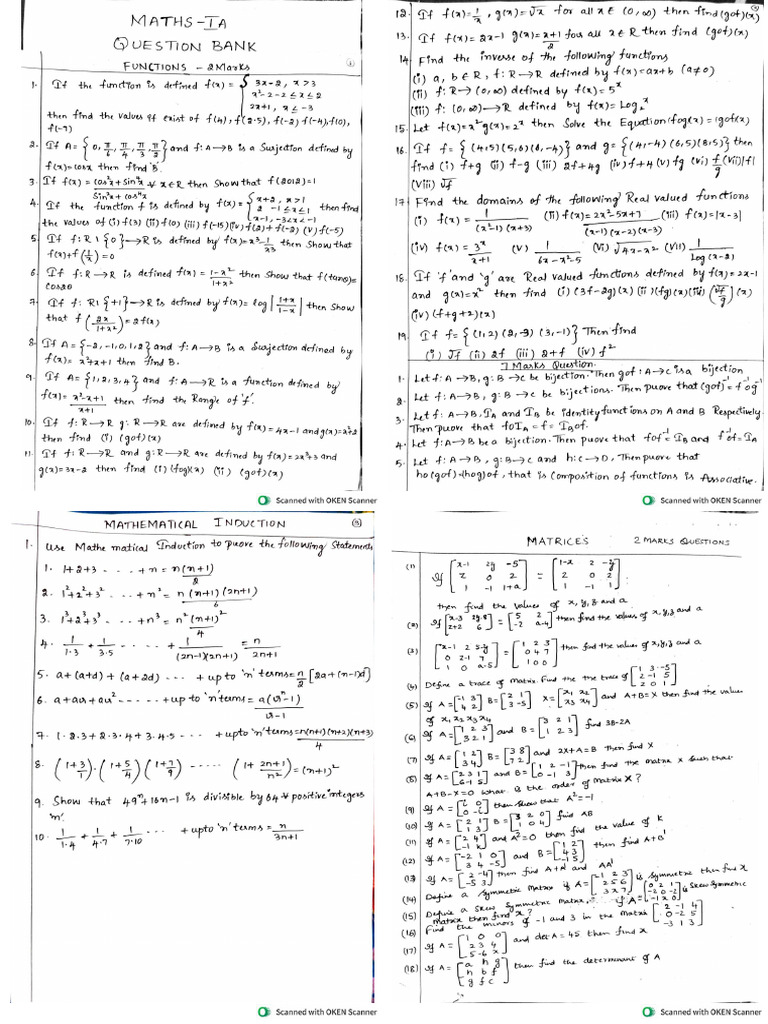 MATHS-IA
QUESTION BANK
FUNCTIONS - 2 Marks
1. If the function is defined f(x) = { 3x-2, x>3
x²-2 -2≤x≤2
2x+1, x≤-3
then find the values if exist of f(4), f(2.5), f(-2) f(-4), f(0),
f(-7)
2. If A = {0, π/6, π/4, π/3, π/2} and f:A→B is a Surjection defined by
f(x)=cosx then find B.
3. If f(x) = (cos²x+sin⁴x)/(sin²x+cos⁴x) ∀ x∈R then Show that f(2012)=1
4. If the function f is defined by f(x) = { x+2, x>1
2 -1≤x≤1
x-1, -3<x<-1 then find
the values of (i) f(3) (ii) f(0) (iii) f(-1.5) (iv) f(2)+f(-2) (v) f(-5)
5. If f: R\{0}→R is defined by f(x)=x³-1/x³ then Show that
f(x)+f(1/x)=0
6. If f:R→R is defined f(x) = (1-x²)/(1+x²) then Show that f(tanθ)=
cos2θ
7. If f: R\{±1}→R is defined by f(x)=log|(1+x)/(1-x)| then Show
that f(2x/(1+x²))=2f(x)
8. If A={-2,-1,0,1,2} and f:A→B is a Surjection defined by
f(x)= x²+x+1 then find B.
9. If A={1,2,3,4} and f:A→R is a function defined by
f(x)= (x²-x+1)/(x+1) then find the Range of 'f'.
10. If f:R→R g:R→R are defined by f(x)=4x-1 and g(x)=x²+2
then find (i) (gof)(x)
11. If f:R→R and g:R→R are defined by f(x)=2x²+3 and
g(x)=3x-2 then find (i) (fog)(x) (ii) (gof)(x)
Scanned with OKEN Scanner
12. If f(x)=1/x, g(x)=√x for all x∈(0,∞) then find (gof)(x)
13. If f(x)=2x-1 g(x)=(x+1)/2 for all x∈R then find (gof)(x)
14. Find the inverse of the following functions
(i) a, b∈R, f:R→R defined by f(x)=ax+b (a≠0)
(ii) f:R→(0,∞) defined by f(x)=5^x
(iii) f:(0,∞)→R defined by f(x)=Log₂x
15. Let f(x)=x² g(x)=2^x then Solve the Equation (fog)(x)=(gof)(x)
16. If f={(4,5)(5,6)(6,-4)} and g={(4,-4)(6,5)(8,5)} then
find (i) f+g (ii) f-g (iii) 2f+4g (iv) f+4 (v) fg (vi) f/g (vii) |f|
(viii) √f
17. Find the domains of the following Real valued functions
(i) f(x)=1/((x²-1)(x+3)) (ii) f(x)=(2x²-5x+7)/((x-1)(x-2)(x-3)) (iii) f(x)=|x-3|
(iv) f(x)=3^x/(x+1) (v) 1/(6x-x²-5) (vi) √(4x-x²) (vii) 1/Log(x-2)
18. If 'f' and 'g' are Real valued functions defined by f(x)=2x-1
and g(x)=x² then find (i) (3f-2g)(x) (ii) (fg)(x) (iii) (√f/g)(x)
(iv) (f+g+2)(x)
19. If f={(1,2)(2,-3)(3,-1)} Then find
(i) √f (ii) 2f (iii) 2+f (iv) f²
7 Marks Question.
1. Let f:A→B, g:B→c be bijection. Then gof:A→c is a bijection
2. Let f:A→B, g:B→c be bijections. Then prove that (gof)⁻¹=f⁻¹og⁻¹
3. Let f:A→B, I_A and I_B be identity functions on A and B Respectively.
Then prove that foI_A=f=I_Bof.
4. Let f:A→B be a bijection. Then prove that fof⁻¹=I_B and f⁻¹of=I_A
5. Let f:A→B, g:B→c and h:c→D, Then prove that
ho(gof)=(hog)of, that is composition of functions is Associative.
Scanned with OKEN Scanner
MATHEMATICAL INDUCTION
1. Use Mathematical Induction to prove the following Statements
1. 1+2+3 ..... +n = n(n+1)/2
2. 1²+2²+3² ... +n² = n(n+1)(2n+1)/6
3. 1³+2³+3³ ... +n³ = n²(n+1)²/4
4. 1/1.3 + 1/3.5 ..... + 1/((2n-1)(2n+1)) = n/(2n+1)
5. a+(a+d)+(a+2d) ... +upto 'n' terms=n/2[2a+(n-1)d]
6. a+ar+ar² ..... +upto 'n' terms = a(r^n-1)/(r-1)
7. 1.2.3+2.3.4+3.4.5 ... +upto 'n' terms=n(n+1)(n+2)(n+3)/4
8. (1+3/1).(1+5/4)(1+7/9) ..... (1+(2n+1)/n²)=(n+1)²
9. Show that 49^n+16n-1 is divisible by 64 ∀ positive integers
'n'.
10. 1/1.4 + 1/4.7 + 1/7.10 ... +upto 'n' terms = n/(3n+1)
Scanned with OKEN Scanner
MATRICES 2 MARKS QUESTIONS
(1) If [x-1 2y -5; z 0 2; 1 -1 1+a] = [1-x 2 -y; 2 0 2; 1 -1 1]
then find the values of x, y, z and a
(2) If [x-3 2y-8; z+2 6] = [5 2; -2 a-4] then find the values of x,y,z and a
(3) [x-1 2 5-y; 0 z-1 7; 1 0 a-5] = [1 2 3; 0 4 7; 1 0 0] then find the values of x,y,z and a
(4) Define a trace of matrix. Find the trace of [1 3 -5; 2 -1 5; 2 0 1]
(5) If A=[-1 3; 4 2] B=[2 1; 3 -5] X=[x1 x2; x3 x4] and A+B=X then find the values
of x1 x2 x3 x4
(6) If A=[1 2 3; 3 2 1] and B=[3 2 1; 1 2 3] find 3B-2A
(7) If A=[1 2; 3 4] B=[3 8; 7 2] and 2X+A=B then find X
(8) If A=[2 3 1; 6 -1 5] and B=[1 2 -1; 0 -1 3] then find the matrix X such that
A+B-X=0 what is the order of matrix X?
(9) If A=[i 0; 0 -i] then show that A²=-I
(10) If A=[2 1; 1 3] B=[3 2 0; 1 0 4] find AB
(11) If A=[2 4; -1 k] and A²=0 then find the value of K
(12) If A=[-2 1 0; 3 4 -5] and B=[1 2; 4 3; -1 5] then find A+B'
(13) If A=[2 -4; -5 3] then find A+A' and AA'
(14) Define a symmetric Matrix if A=[-1 2 3; 2 5 6; 3 x 7] is symmetric then find x
(15) Define a Skew Symmetric matrix. If A=[0 2 1; -2 0 -2; -1 x 0] is skew symmetric
matrix then find x?
(16) Find the minors of -1 and 3 in the matrix [2 -1 4; 0 -2 5; -3 1 3]
(17) If A=[1 0 0; 2 3 4; 5 -6 x] and det A=45 then find x
(18) If A=[a h g; h b f; g f c] then find the determinant of A
Scanned with OKEN Scanner